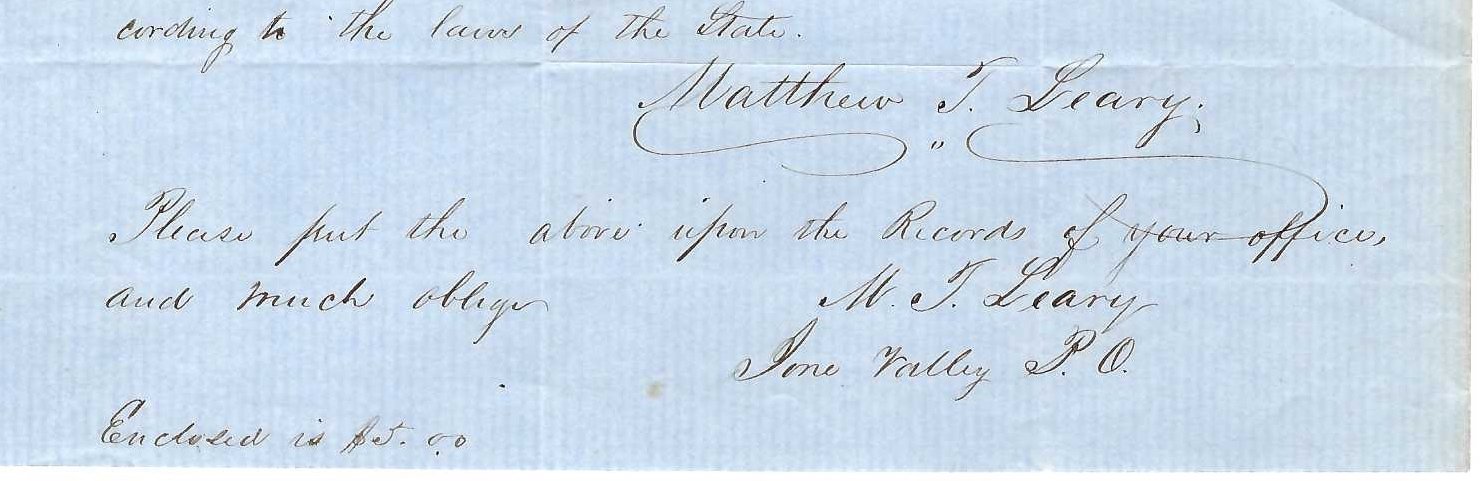 cording to the laws of the State.
Matthew T. Leary.
"
Please put the above upon the Records of your office,
and much oblige
M. T. Leary
Ione Valley P. O.
Enclosed is $5.00